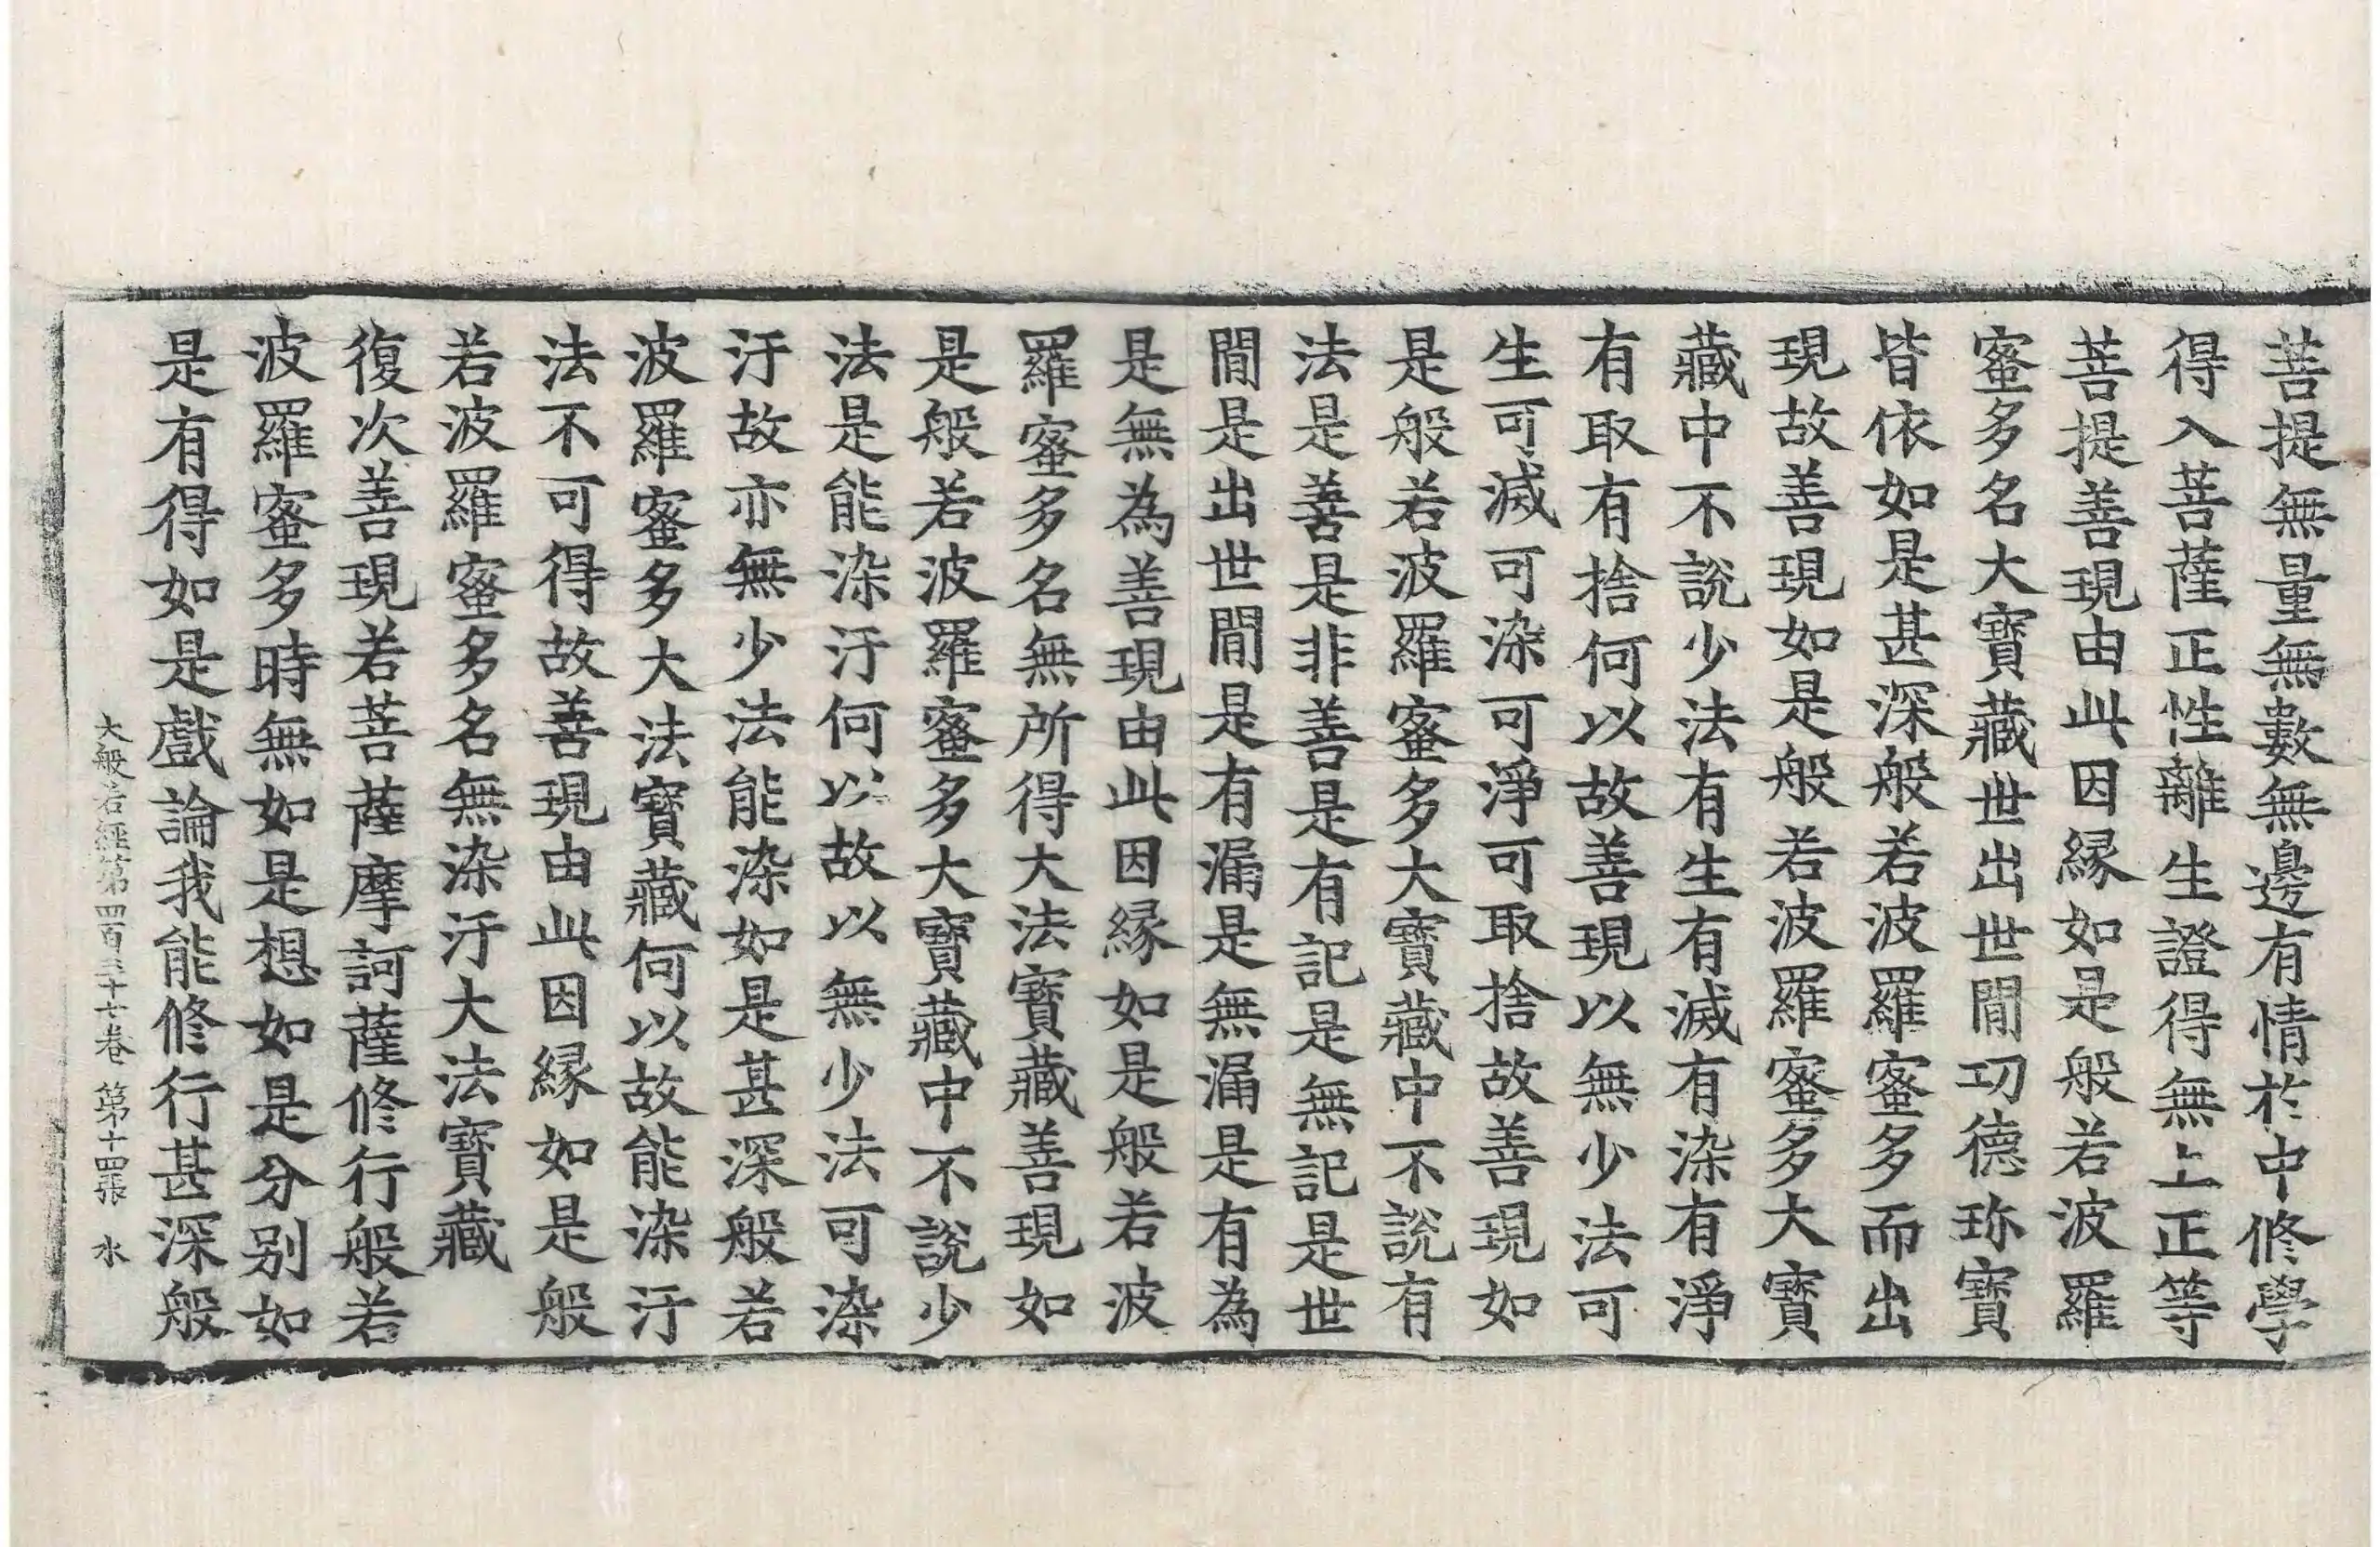 菩提無量無數無邊有情於中修學
得入菩薩正性離生證得無上正等
菩提善現由此因緣如是般若波羅
蜜多名大寶藏世出世間功德珎寶
皆依如是甚深般若波羅蜜多而出
現故善現如是般若波羅蜜多大寶
藏中不說少法有生有滅有染有淨
有取有捨何以故善現以無少法可
生可滅可染可淨可取捨故善現如
是般若波羅蜜多大寶藏中不說有
法是善是非善是有記是無記是世
間是出世間是有漏是無漏是有為
是無為善現由此因緣如是般若波
羅蜜多名無所得大法寶藏善現如
是般若波羅蜜多大寶藏中不說少
法是能染汙何以故以無少法可染
汙故亦無少法能染如是甚深般若
波羅蜜多大法寶藏何以故能染汙
法不可得故善現由此因緣如是般
若波羅蜜多名無染汙大法寶藏
復次善現若菩薩摩訶薩修行般若
波羅蜜多時無如是想如是分別如
是有得如是戲論我能修行甚深般
大般若經第四百三十七卷 第十四張 水